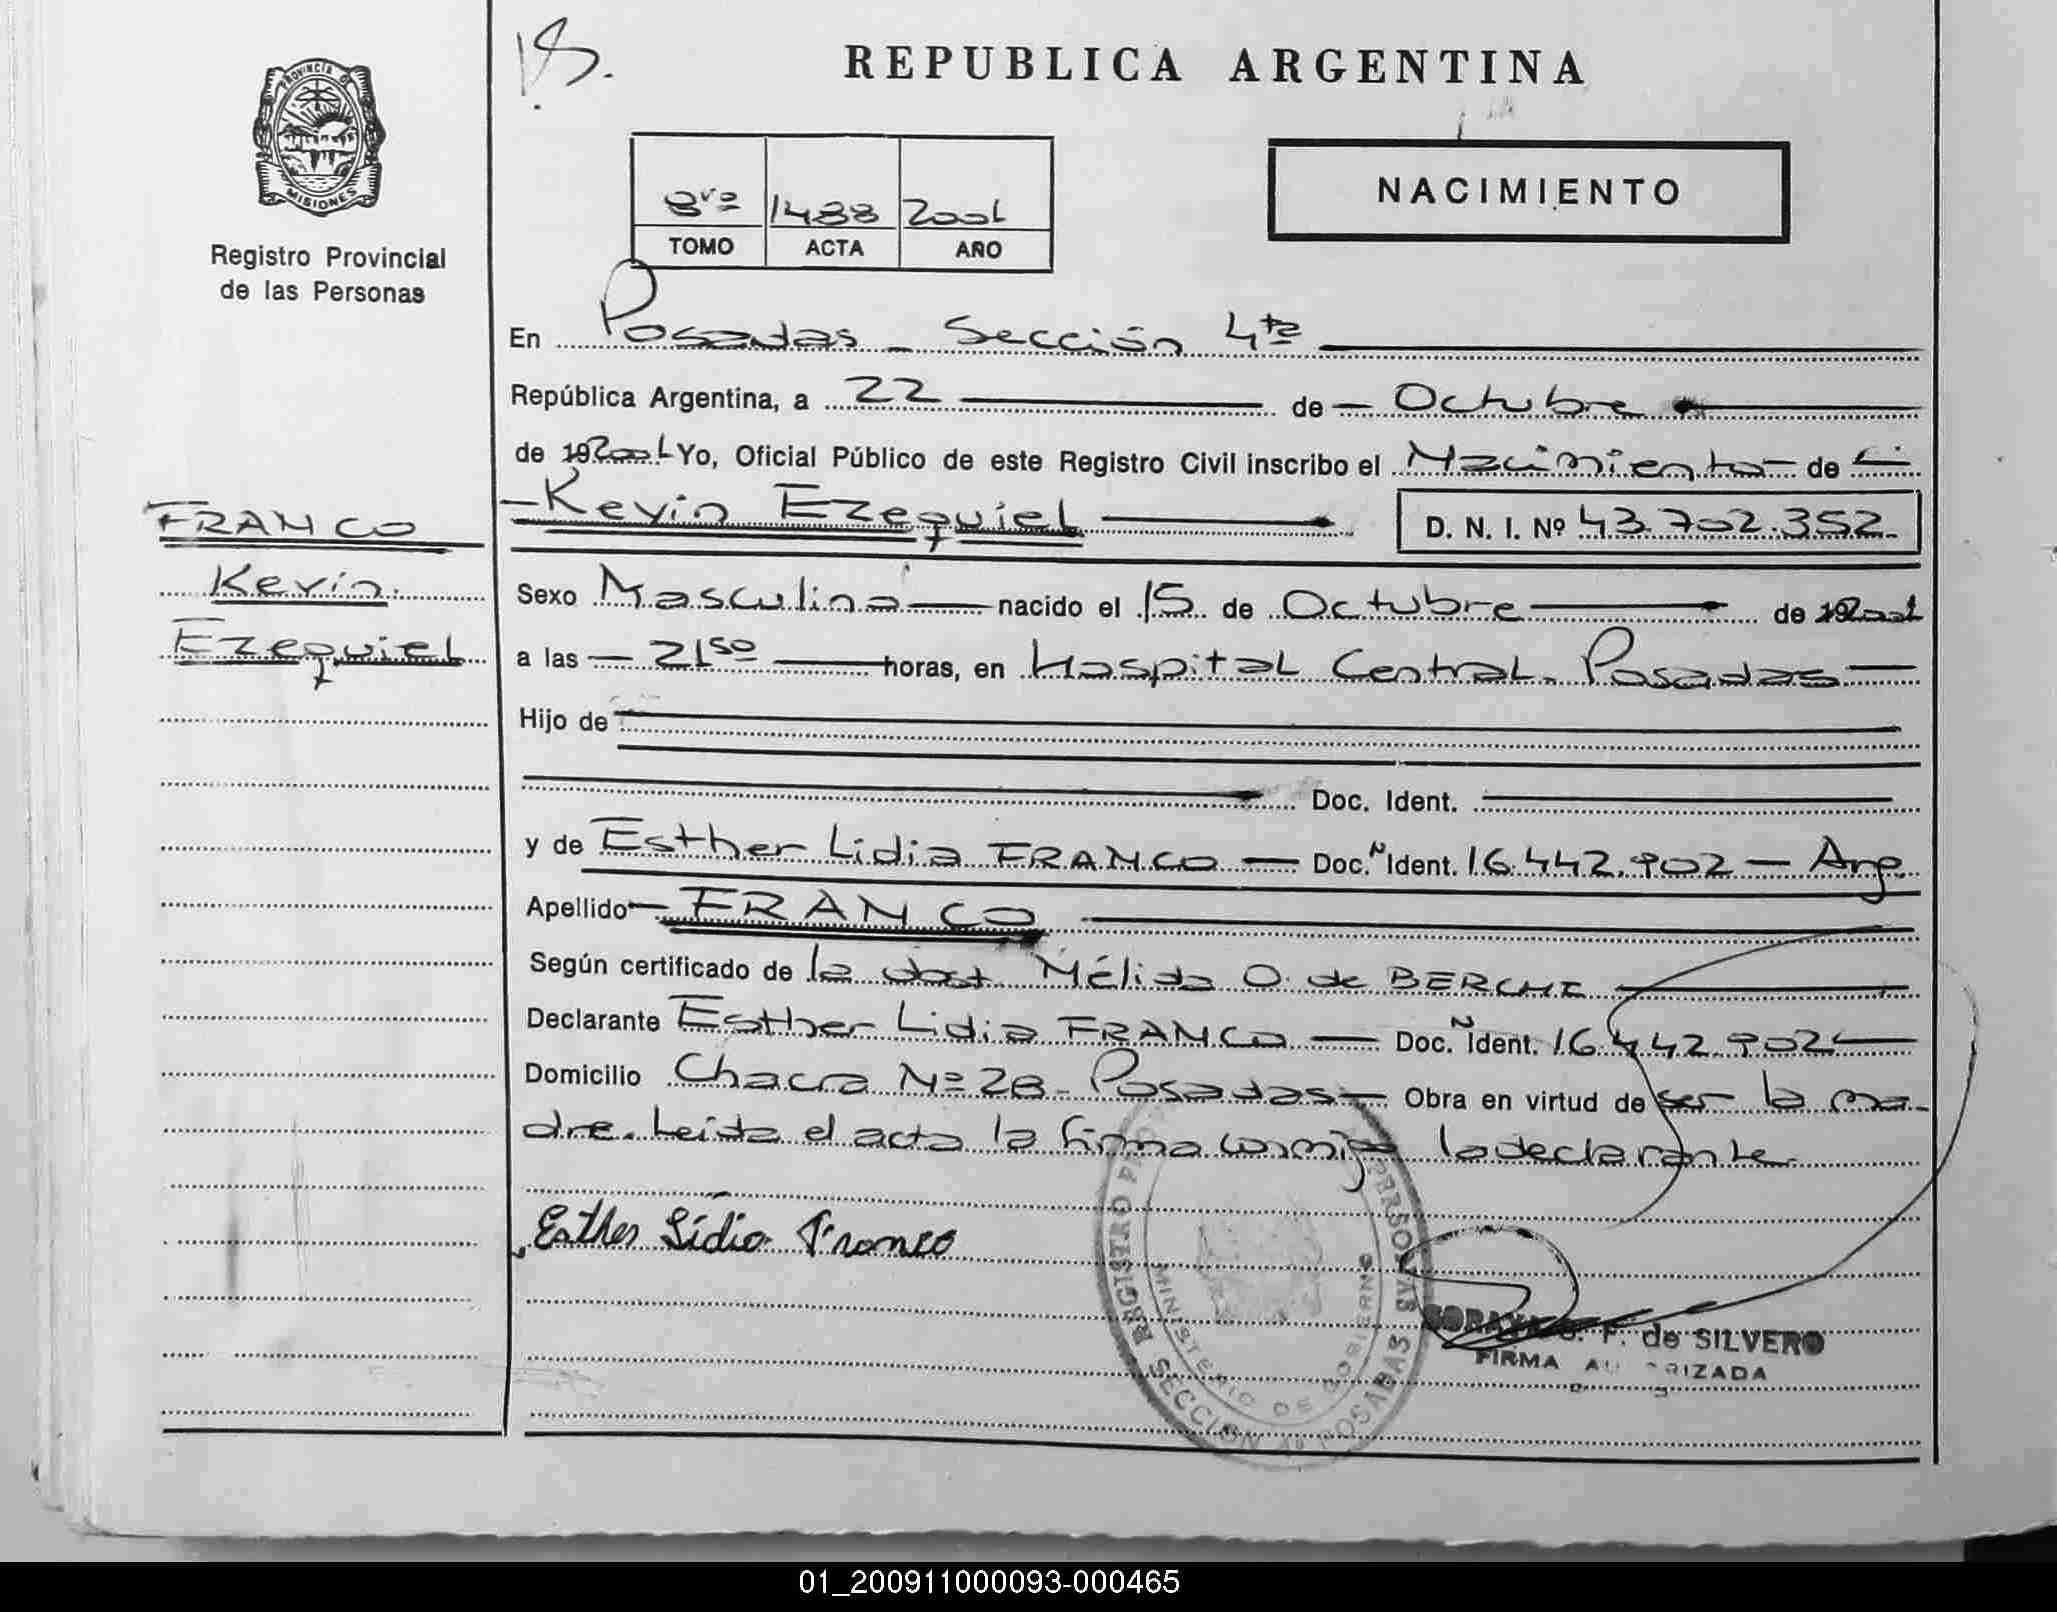 REPUBLICA ARGENTINA
PROVINCIA DE MISIONES
Registro Provincial
de las Personas
NACIMIENTO
1488 2001
TOMO ACTA AÑO
En Posadas - Sección 4ta
República Argentina, a 22 de Octubre
de 192001 Yo, Oficial Público de este Registro Civil inscribo el Nacimiento de
Kevin Ezequiel D. N. I. Nº 43.702.352
FRANCO
Kevin
Ezequiel
Sexo Masculino nacido el 15 de Octubre de 192001
a las 21 50 horas, en Hospital Central. Posadas
Hijo de
Doc. Ident.
y de Esther Lidia FRANCO Doc. Ident. 16.442.902 - Arg.
Apellido FRANCO
Según certificado de la obst. Mélida O. de BERCHI
Declarante Esther Lidia FRANCO Doc. Ident. 16.442.902
Domicilio Chacra Nº 28 - Posadas Obra en virtud de ser la ma-
dre. Leida el acta la firma conmigo la declarante
Esther Lidia Franco
REGISTRO PERSONAS
MINISTERIO DE GOBIERNO
SECCION 4ª POSADAS
F. de SILVERO
FIRMA AUTORIZADA
01_200911000093-000465